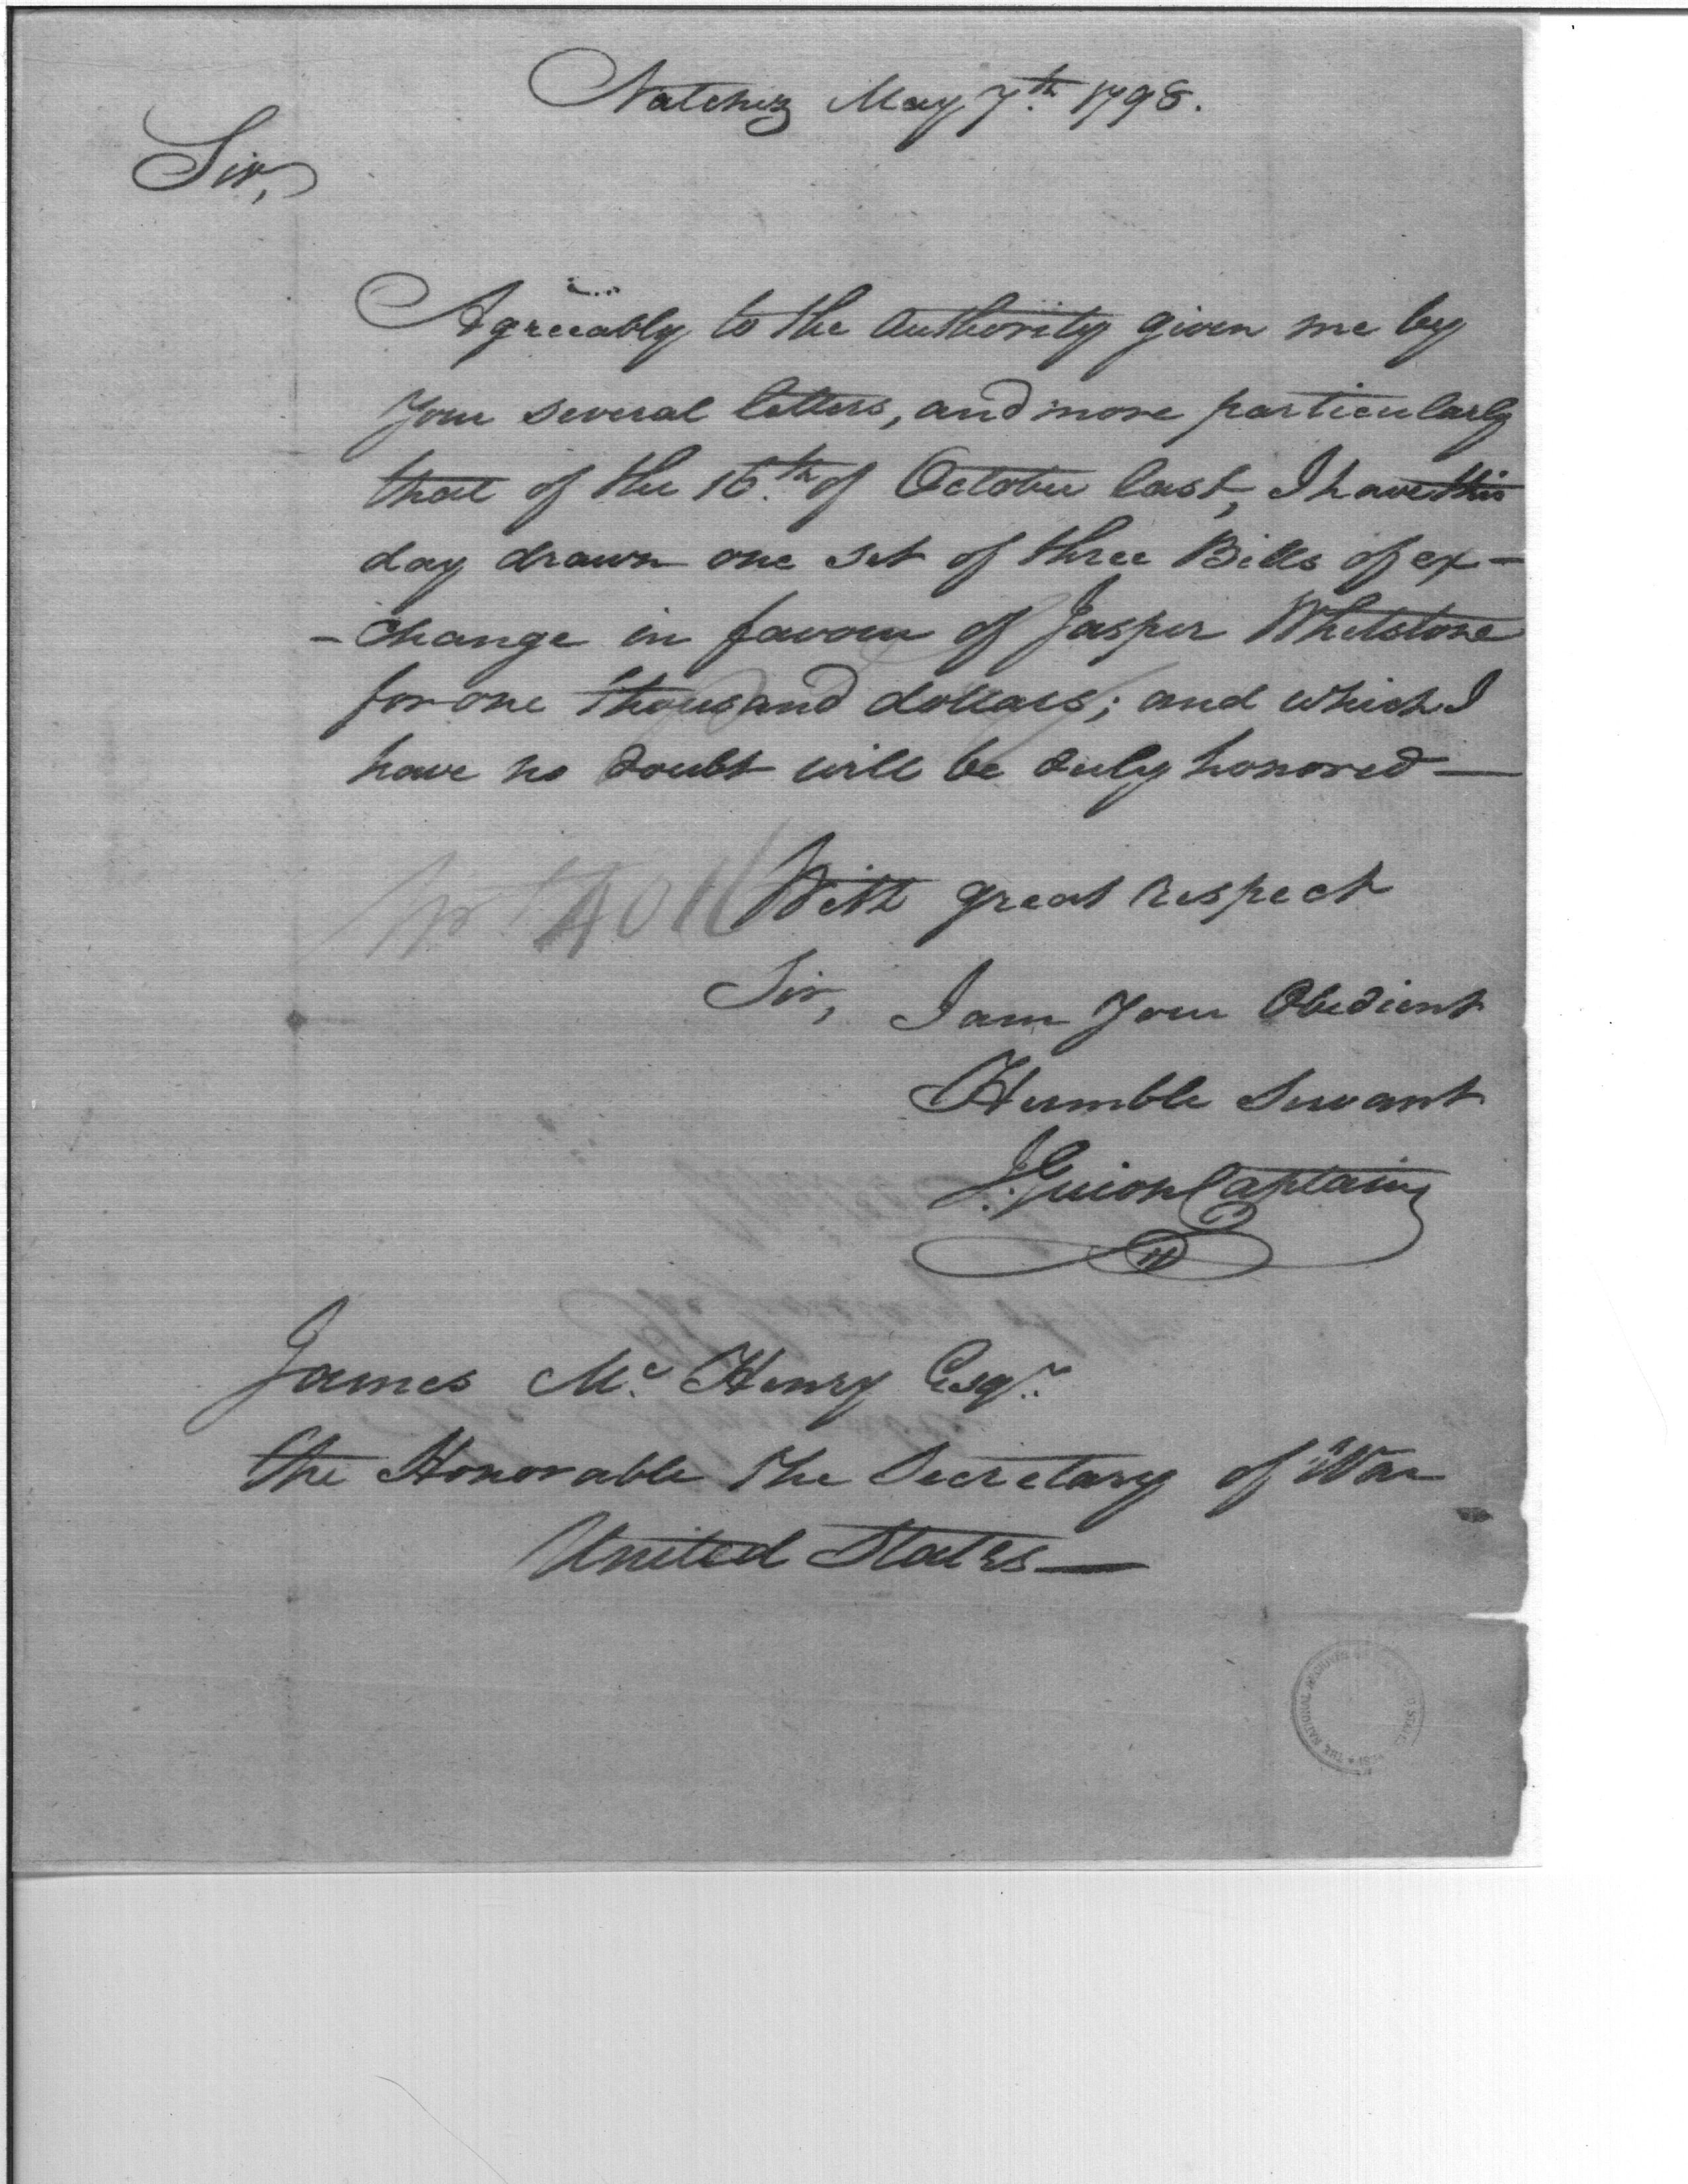 Natchez May 7th. 1798.
Sir,
Agreeably to the authority given me by
your several letters, and more particularly
that of the 16th. of October last, I have this
day drawn one set of three Bills of ex-
-change in favour of Jasper Whetstone
for one thousand dollars; and which I
have no doubt will be duly honored—
With great respect
Sir, I am Your Obedient
Humble Servant
I. Guion Captain
James Mc. Henry Esqr.
the Honorable the Secretary of War
United States—